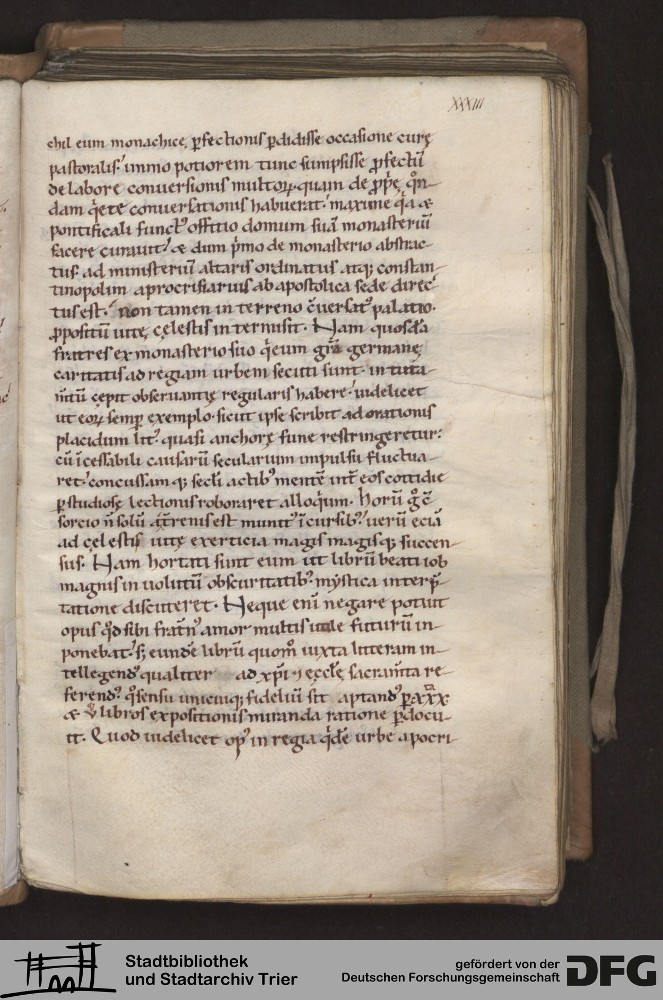 XXXIII
chil eum monachicę ꝑfectionis ꝑdidisse occasione curę
pastoralis. immo potiorem tunc sumpsisse ꝓfectū
de labore conuersionis multoꝝ. quam de ꝓprię qͦn-
dam qͥete conuersationis habuerat. maxime qͥa &
pontificali funct᷒ offitio domum suā monasteriū
facere curauit. & dum pͥmo de monasterio abstrac-
tus. ad ministeriū altaris ordinatus atq; constan-
tinopolim aprocrisiarius ab apostolica sede direc-
tus est. non tamen in terreno c̄uersat᷒ palatio.
ꝓpositū uitę cęlestis intermisit. Nam quosdā
fratres ex monasterio suo qͥ eum grā germanę
caritatis ad regiam urbem secuti sunt. in tuta-
mtū cępit obseruantię regularis habere. uidelicet
ut eoꝝ semꝑ exemplo. sicut ipse scribit ad orationis
placidum lit᷒. quasi anchorę fune restringeretur.
cū īcessabili causarū secularium impulsu fluctua-
ret. concussam q; sec̄li actib᷒ mentē int̄ eos cottidie
ꝑ studiosę lectionis roboraret alloqͥum. Horū gͦ c̄-
sorcio n̄ solū a t̄renis est munit᷒ īcursib᷒. uerū eciā
ad cęlestis uitę exerticia magis magisq; succen-
sus. Nam hortati sunt eum ut librū beati iob
magnis inuolutū obscuritatib᷒. mystica interp̄-
tatione discuteret. Neque eni negare potuit
opus qͦd sibi fratn̄᷒ amor multis utile futurū in-
ponebat. s; eundē librū quom̊ iuxta litteram in-
tellegend᷒ qualiter ad xp̄i ⁊ ecclę sacram̄ta re-
ferend᷒. qͦ sensu unicuiq; fidelium sit aptand᷒ ꝑ xxx
& v libros expositionis miranda ratione ꝑdocu-
it. Quod uidelicet op᷒ in regia qͥdē urbe apocri-
Stadtbibliothek
und Stadtarchiv Trier
gefördert von der
Deutschen Forschungsgemeinschaft
DFG